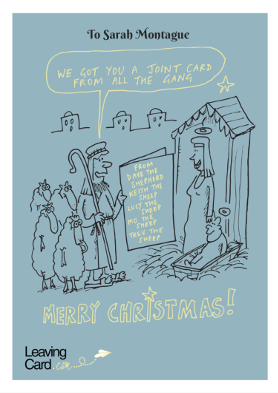 To Sarah Montague
WE GOT YOU A JOINT CARD
FROM ALL THE GANG
FROM
DAVE THE
SHEPHERD
KEITH THE
SHEEP
LUCY THE
SHEEP
MO THE
SHEEP
TREV THE
SHEEP
MERRY CHRISTMAS!
Leaving
Card.com